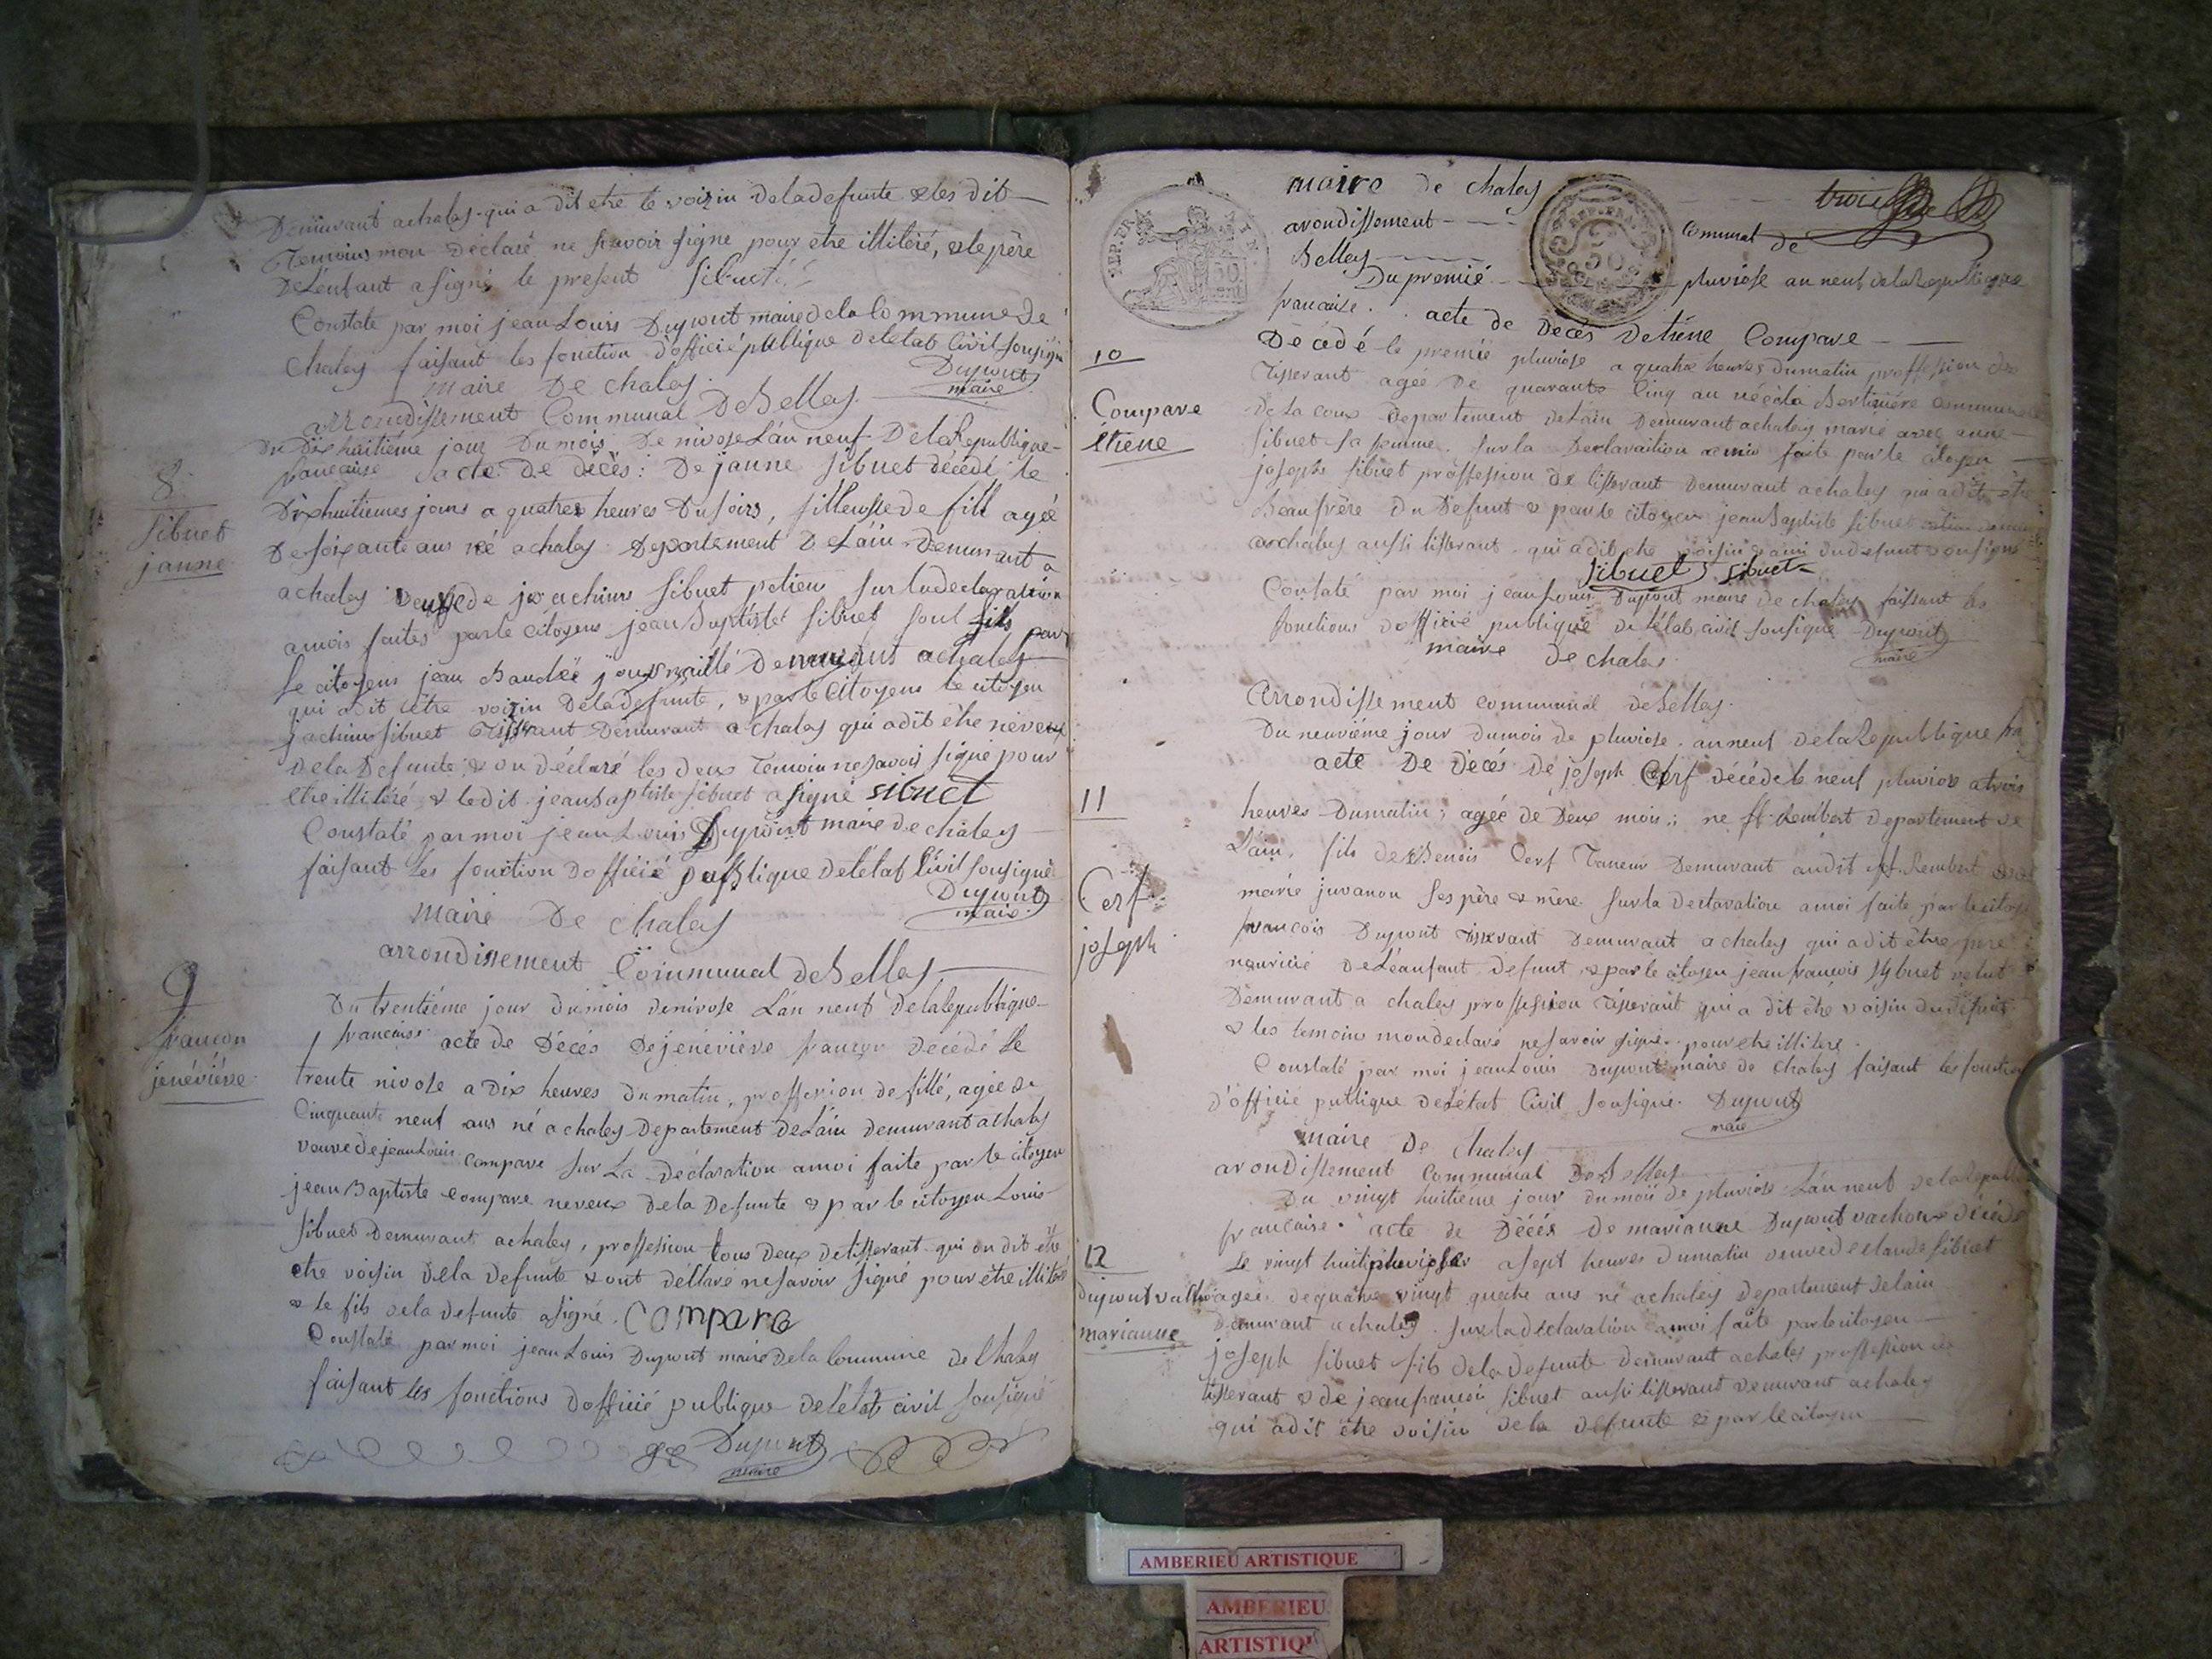 Demurant a chaley qui a dit etre le voizin dela defunte & les dit
Temoins mon declaré ne savoir signe pour etre illiteré, & le père
De Lenfant a signé le present Sibuet
Constate par moi jean Louis Dupont maire dela Commune de
Chaley faisant les fonction d'officié publique deletat Civil sousigné
Dupont
maire
Maire De chaley
arrondissement Communal De Belley
Du Dix huitième jour Du mois De nivose L'an neuf De la Republique
francaise acte De décès: De janne Sibuet décédé le
8
Sibuet
janne
Dixhuitiemes jours a quatres heures Du soirs, filleusse de fill agée
De soixante ans né achaley Departement De Lain Demurant a
achaley veuffe de joachims Sibuet potiens sur la declaration
amois faites par le citoyens jean Baptiste Sibuet sout fils par
le citoyens jean Baudée journaillé Demurant achaley
qui a dit être voizin Dela Defunte, & par le Citoyens le citoyen
jachims Sibuet Tisserant Demurant a chaley qui a dit être neveux
De la Defunte, & on déclaré les deux Temoin ne savoir signé pour
etre illiteré & le dit jean baptiste Sibuet a signé Sibuet
Constaté par moi jean Louis Dupont maire de chaley
faisant les fonction d'officié publique deletat Civil sousigné
Dupont
maire
Maire De chaley
arrondissement Communal de Belley
9
francon
jenéviéve
Du trentiéme jour du mois denivose L'an neuf Delarepublique
francaise acte de Décés De jenéviève francon décédé Le
trente nivose a Dix heures du matin, proffession de fillé, agée de
Cinquante neuf ans né a chaley Departement De Lain demurant achaley
veuve de jean Louis Compare sur La déclaration a moi faite par le citoyen
jean Baptiste Compare neveux Dela Defunte & par le citoyen Louis
Sibuet Demurant achaley, proffession tous Deux de tisserant qui on dit être
etre voisin dela Defunte & ont déclaré ne savoir signé pour être illiteré
& le fils dela defunte a signé. Compare
Constaté par moi jean Louis Dupont maire De la Commune de Chaley
faisant les fonctions d'officié publique de létat civil sousigné
Dupont
maire
maire de chaley
arondissement
communal de
Belley
Du premié pluviose an neuf dela Republique
francaise. acte de Décés Detiéne Compare
10
Compare
étiene
Décédé le premié pluviose a quatre heures du matin proffession de
Tisserant agée De quarante Cinq an né à la Bertiniére commune
De La coux Departement De Lain Demurant achaley marié avec anne
Sibuet sa femme. sur la Declaraition a moi faite par le citoyen
joseph Sibuet proffession de tisserant Demurant achaley qui a dit être
Beaufrère Du Defunt & par le citoyen jean Baptiste Sibuet
achaley aussi tisserant qui a dit etre voisin & ami du defunt sousigné
Sibuet Sibuet
Constaté par moi jean Louis Dupont maire de chaley faisant les
fonctions d'officié publique de l'état civil sousigné Dupont
maire
maire de chaley
Arrondissement communal de Belley
Du neuviéme jour du mois de pluviose an neuf dela Republique
acte De Decés De joseph Cerf décéde le neuf pluviose a trois
11
Cerf
joseph
heures Dumatin; agée de Deux mois; ne St Rembert Departement De
L'ain, fils de Benois Cerf Taneur Demurant audit St. Rembert
marie juvanon ses père & mère sur la Declaration a moi faite par le citoyen
francois Dupont Tisserant Demurant a chaley qui a dit être pere
nouricié De Léanfant defunt, & par le citoyen jean francois Sybuet
Demurant a chaley proffession Tisserant qui a dit étre voisin du defunt
& les temoins mon declaré ne savoir signé. pour etre illiteré.
Constaté par moi jean Louis Dupont maire de chaley faisant les fonction
d'officié publique de létat Civil sousigné. Dupont
maire
maire De Chaley
arondissement Communal De Belley
Du vingt huitieme jour du mois de pluviose L'an neuf dela republique
francaise. acte de Décés de marianne Dupont vachon décédé
12
Dupont vachon
marianne
Le vingt huit pluviose a sept heures dumatin veuve de claude Sibuet
agée de quatre vingt quatre ans né achaley Departement de lain
Demurant a chaley sur la déclaration a moi faite par le citoyen
joseph Sibuet fils dela defunte demurant achaley proffession de
tisserant & de jean francois Sibuet aussi tisserant demurant achaley
qui a dit être voisin de la defunte & par le citoyen
AMBERIEU ARTISTIQUE
AMBERIEU
ARTISTIQU